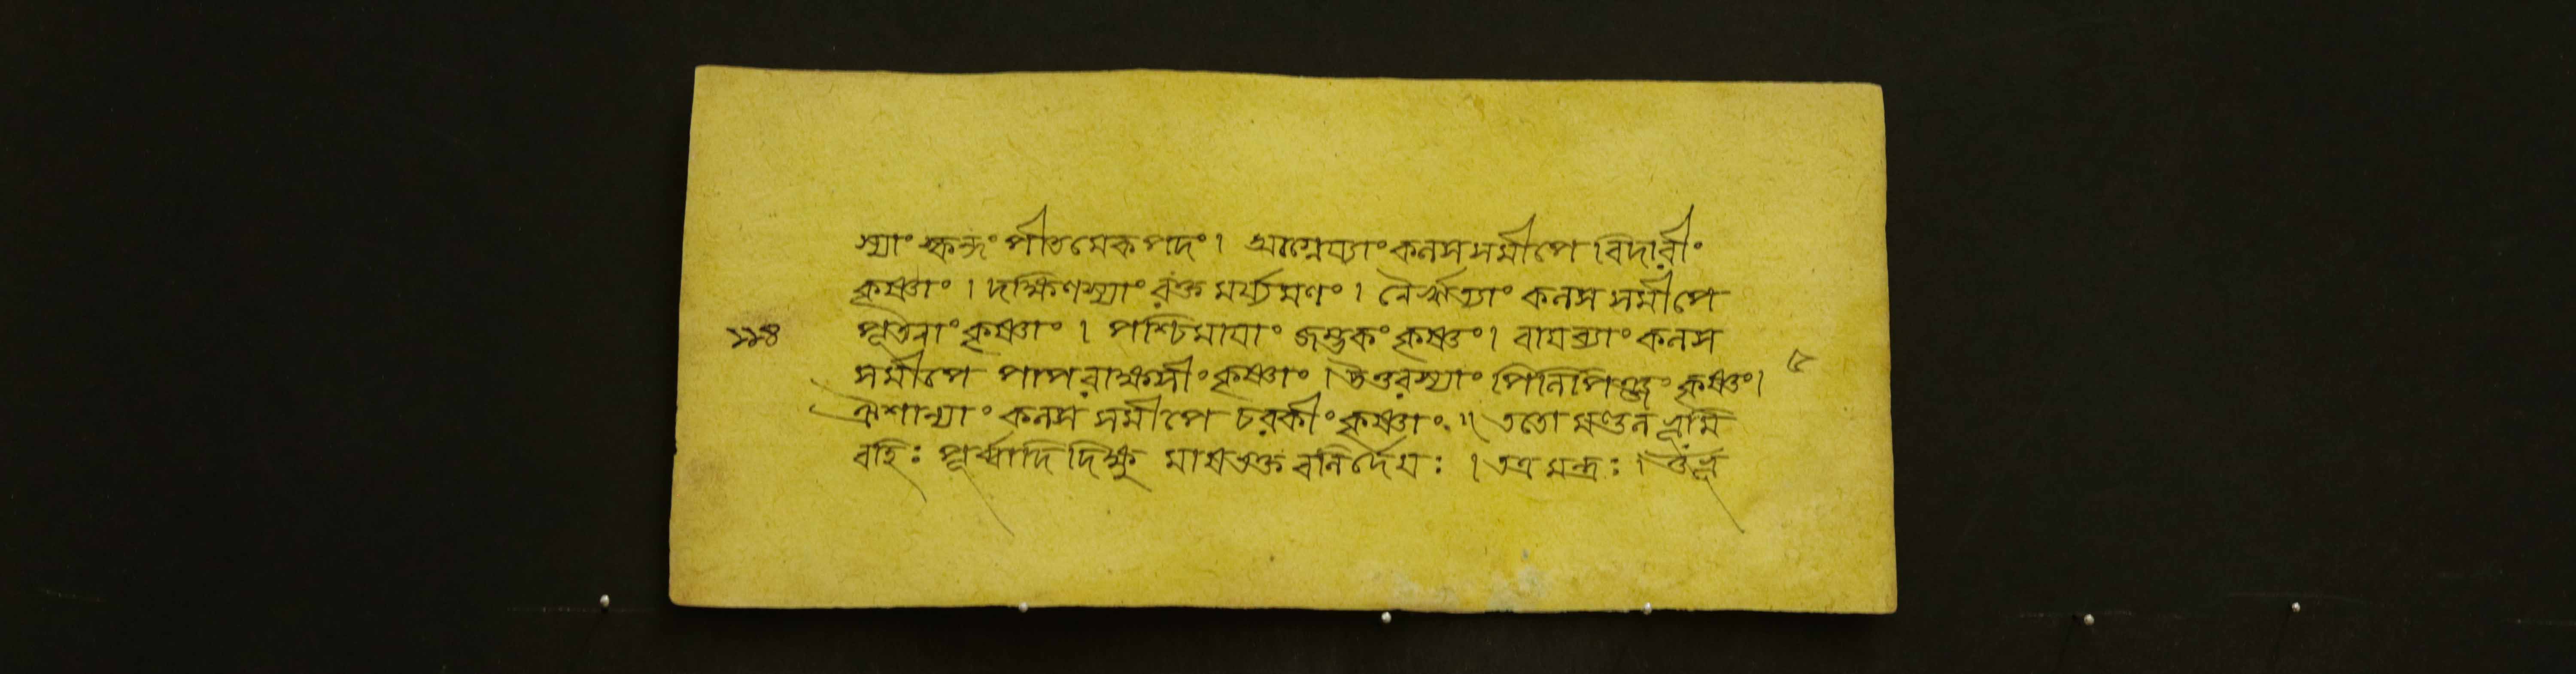 স্যাং স্কন্দং পীতমেকপদং। আগ্নেয্যাং কলসসমীপে বিদারীং
কৃষ্ণাং। দক্ষিণস্যাং রক্তমর্য্যমণং। নৈরৃত্যাং কলস সমীপে
১১৪ পূতনাং কৃষ্ণাং। পশ্চিমাযাং জম্ভকং কৃষ্ণং। বাযব্যাং কলস
সমীপে পাপরাক্ষসীং কৃষ্ণাং। উত্তরস্যাং পিলিপিঞ্জং কৃষ্ণং। ৫
ঐশান্যাং কলস সমীপে চরকীং কৃষ্ণাং॥ ততো মণ্ডল ভূমি
বহিঃ পূর্ব্বাদি দিক্ষু মাষভক্ত বলির্দেযঃ। তত্র মন্ত্রঃ। ওঁ ভূ